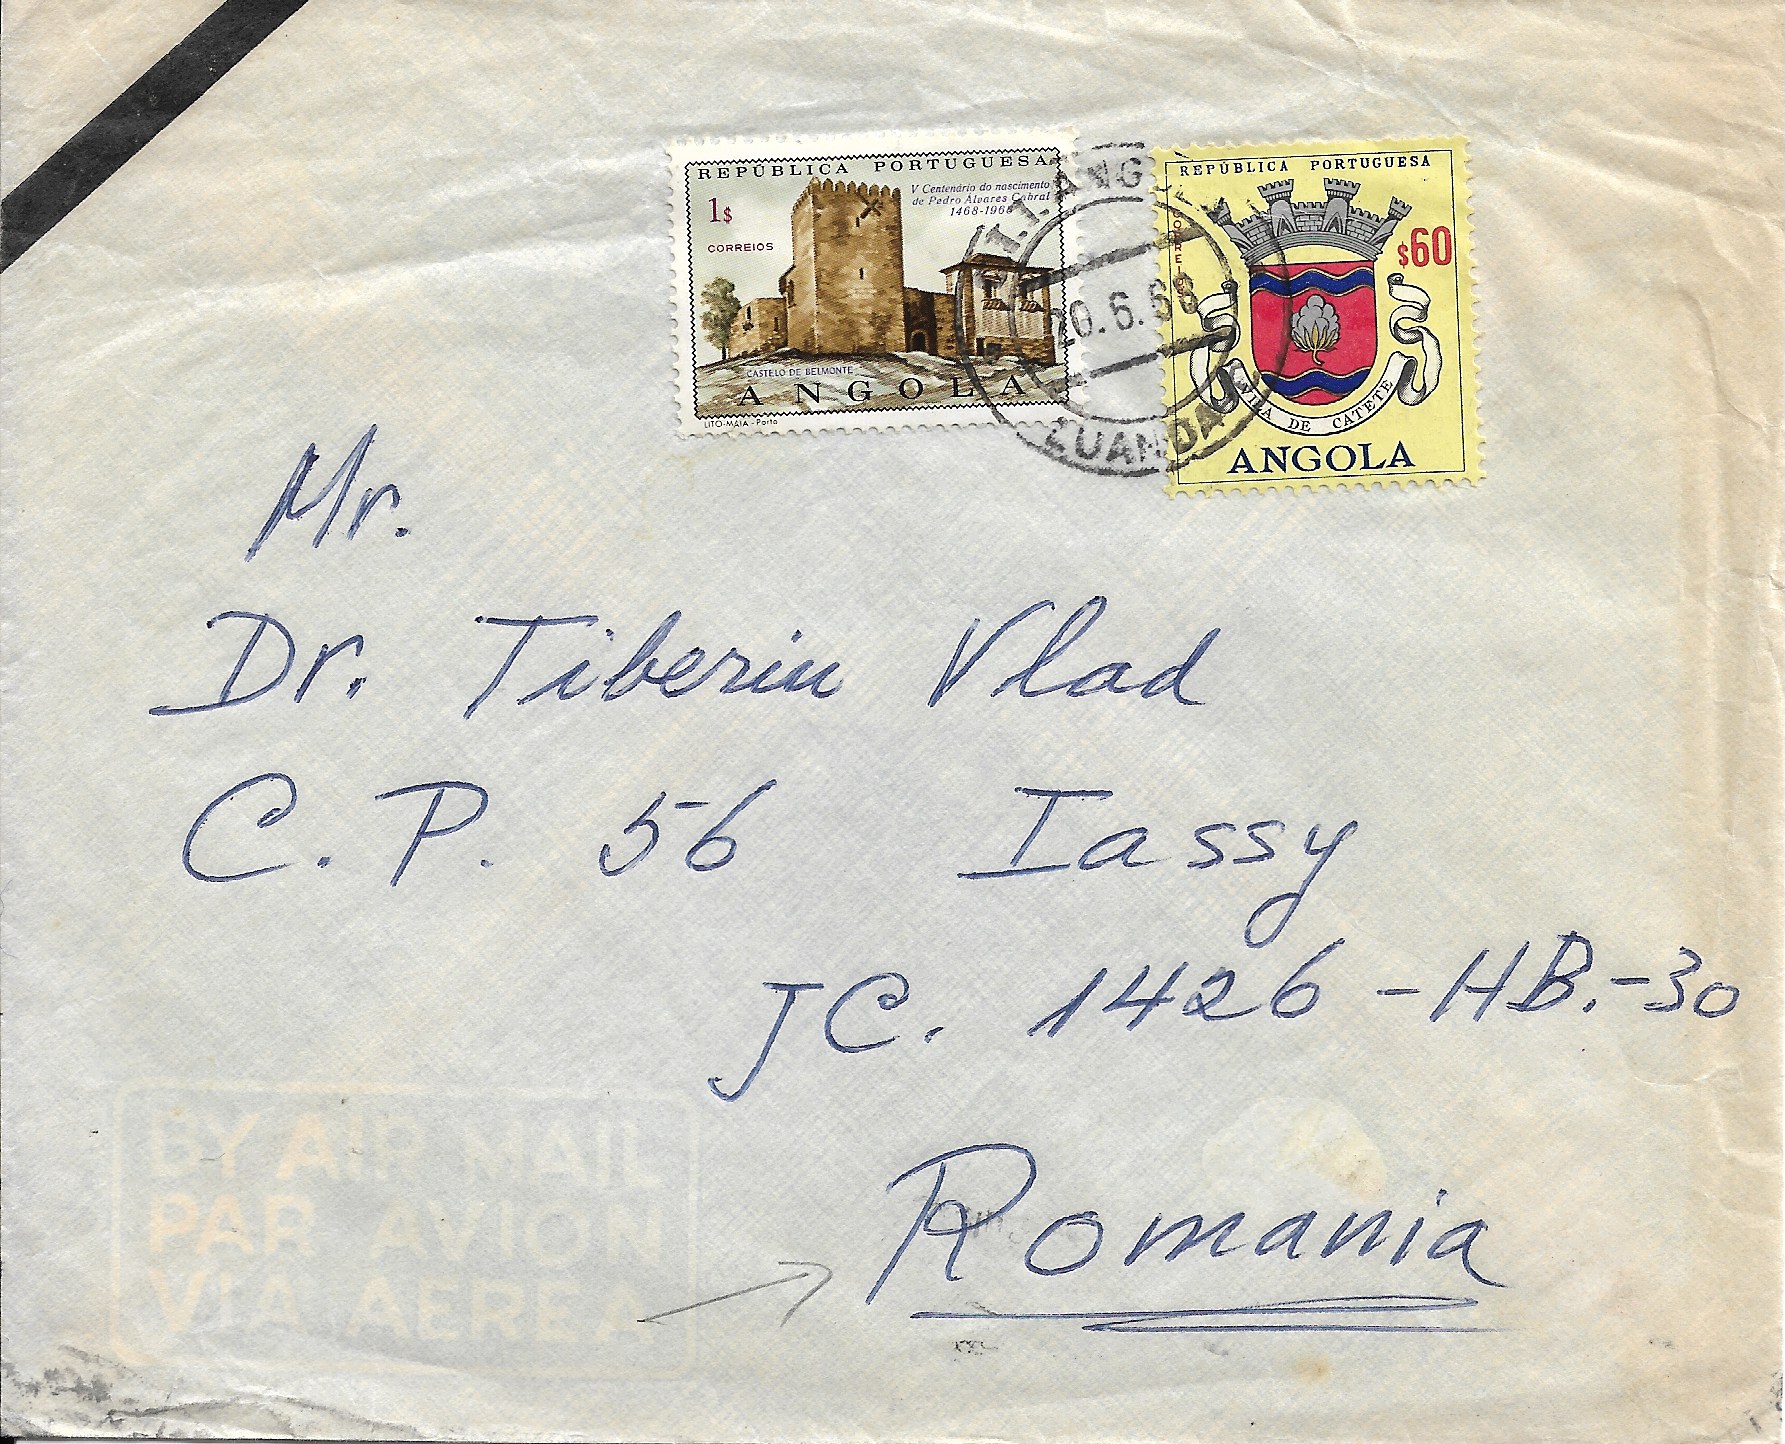 REPÚBLICA PORTUGUESA
1$
V Centenário do nascimento
de Pedro Álvares Cabral
1468-1968
CORREIOS
CASTELO DE BELMONTE
ANGOLA
LITO-MAIA - Porto
20.6.68
LUANDA
REPÚBLICA PORTUGUESA
CORREIOS
$60
VILA DE CATETE
ANGOLA
Mr.
Dr. Tiberiu Vlad
C. P. 56 Iassy
JC. 1426 - HB.-30
Romania
BY AIR MAIL
PAR AVION
VIA AEREA